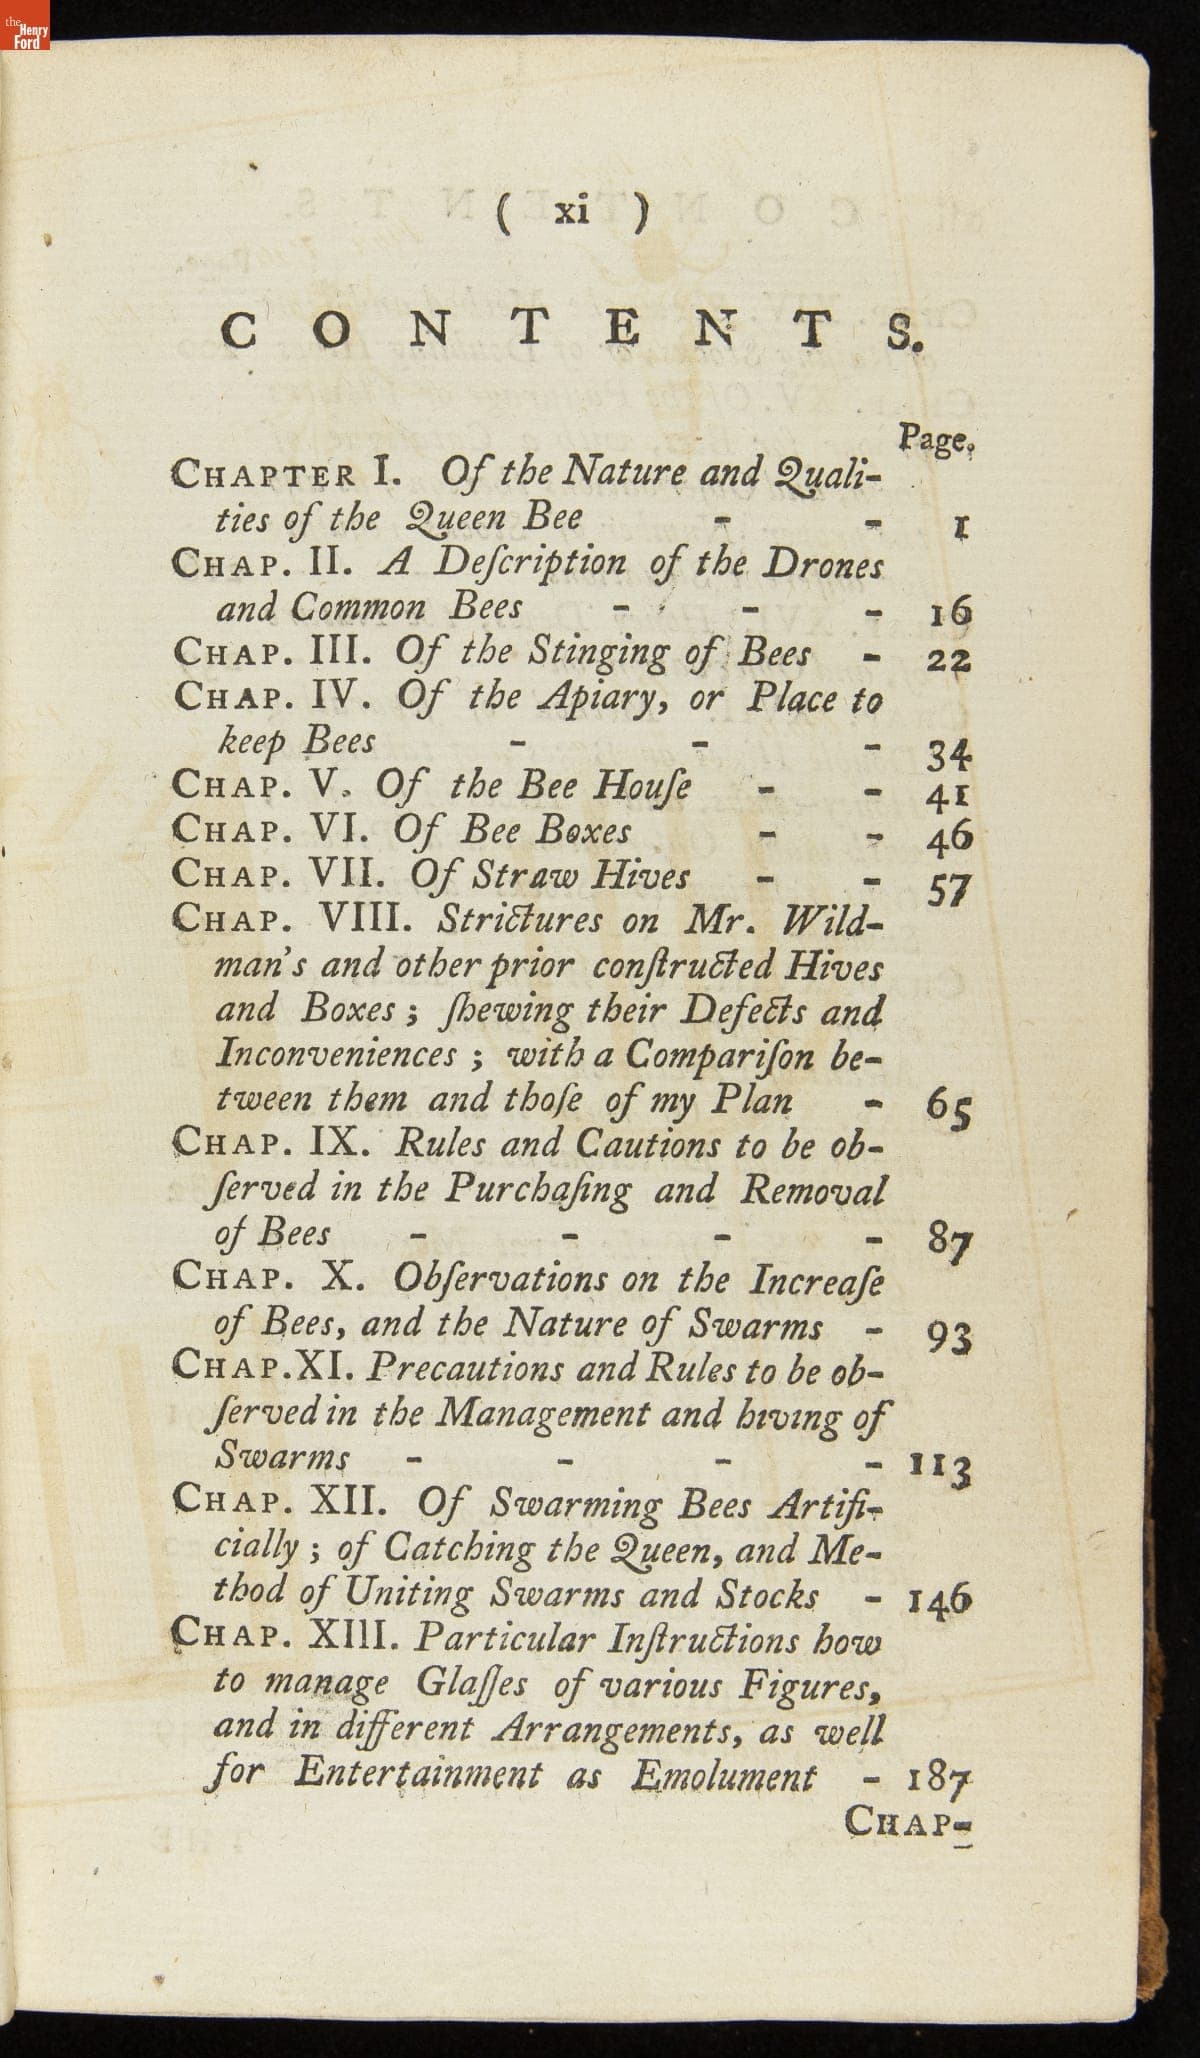 the
Henry
Ford
( xi )
CONTENTS.
Page.
CHAPTER I. Of the Nature and Quali-
ties of the Queen Bee - - 1
CHAP. II. A Deſcription of the Drones
and Common Bees - - - 16
CHAP. III. Of the Stinging of Bees - 22
CHAP. IV. Of the Apiary, or Place to
keep Bees - - - 34
CHAP. V. Of the Bee Houſe - - 41
CHAP. VI. Of Bee Boxes - - 46
CHAP. VII. Of Straw Hives - - 57
CHAP. VIII. Strictures on Mr. Wild-
man's and other prior conſtructed Hives
and Boxes ; ſhewing their Defects and
Inconveniences ; with a Compariſon be-
tween them and thoſe of my Plan - 65
CHAP. IX. Rules and Cautions to be ob-
ſerved in the Purchaſing and Removal
of Bees - - - - 87
CHAP. X. Obſervations on the Increaſe
of Bees, and the Nature of Swarms - 93
CHAP. XI. Precautions and Rules to be ob-
ſerved in the Management and hiving of
Swarms - - - - 113
CHAP. XII. Of Swarming Bees Artifi-
cially ; of Catching the Queen, and Me-
thod of Uniting Swarms and Stocks - 146
CHAP. XIII. Particular Inſtructions how
to manage Glaſſes of various Figures,
and in different Arrangements, as well
for Entertainment as Emolument - 187
CHAP-